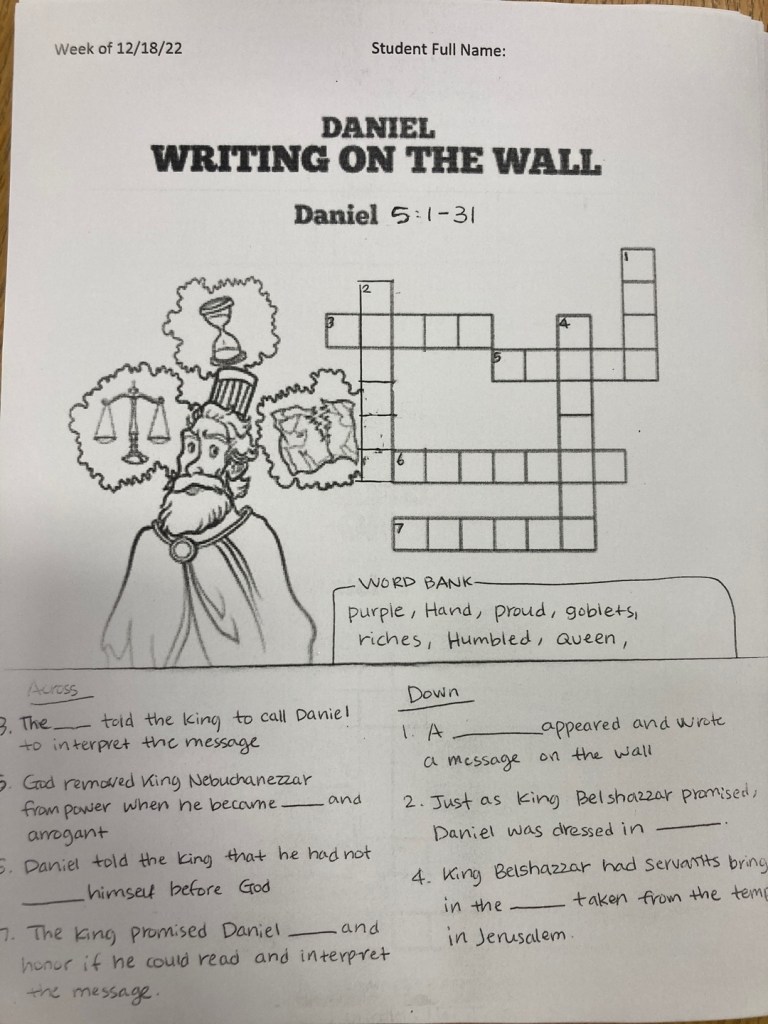 Week of 12/18/22 Student Full Name:
DANIEL
WRITING ON THE WALL
Daniel 5:1-31
1
2
3 4
5
6
7
WORD BANK
purple, Hand, proud, goblets,
riches, Humbled, Queen,
Across
3. The ___ told the King to call Daniel
to interpret the message
5. God removed King Nebuchanezzar
from power when he became ___ and
arrogant
6. Daniel told the King that he had not
___ himself before God
7. The King promised Daniel ___ and
honor if he could read and interpret
the message.
Down
1. A ___ appeared and wrote
a message on the wall
2. Just as King Belshazzar promised,
Daniel was dressed in ___.
4. King Belshazzar had servants bring
in the ___ taken from the temp
in Jerusalem.